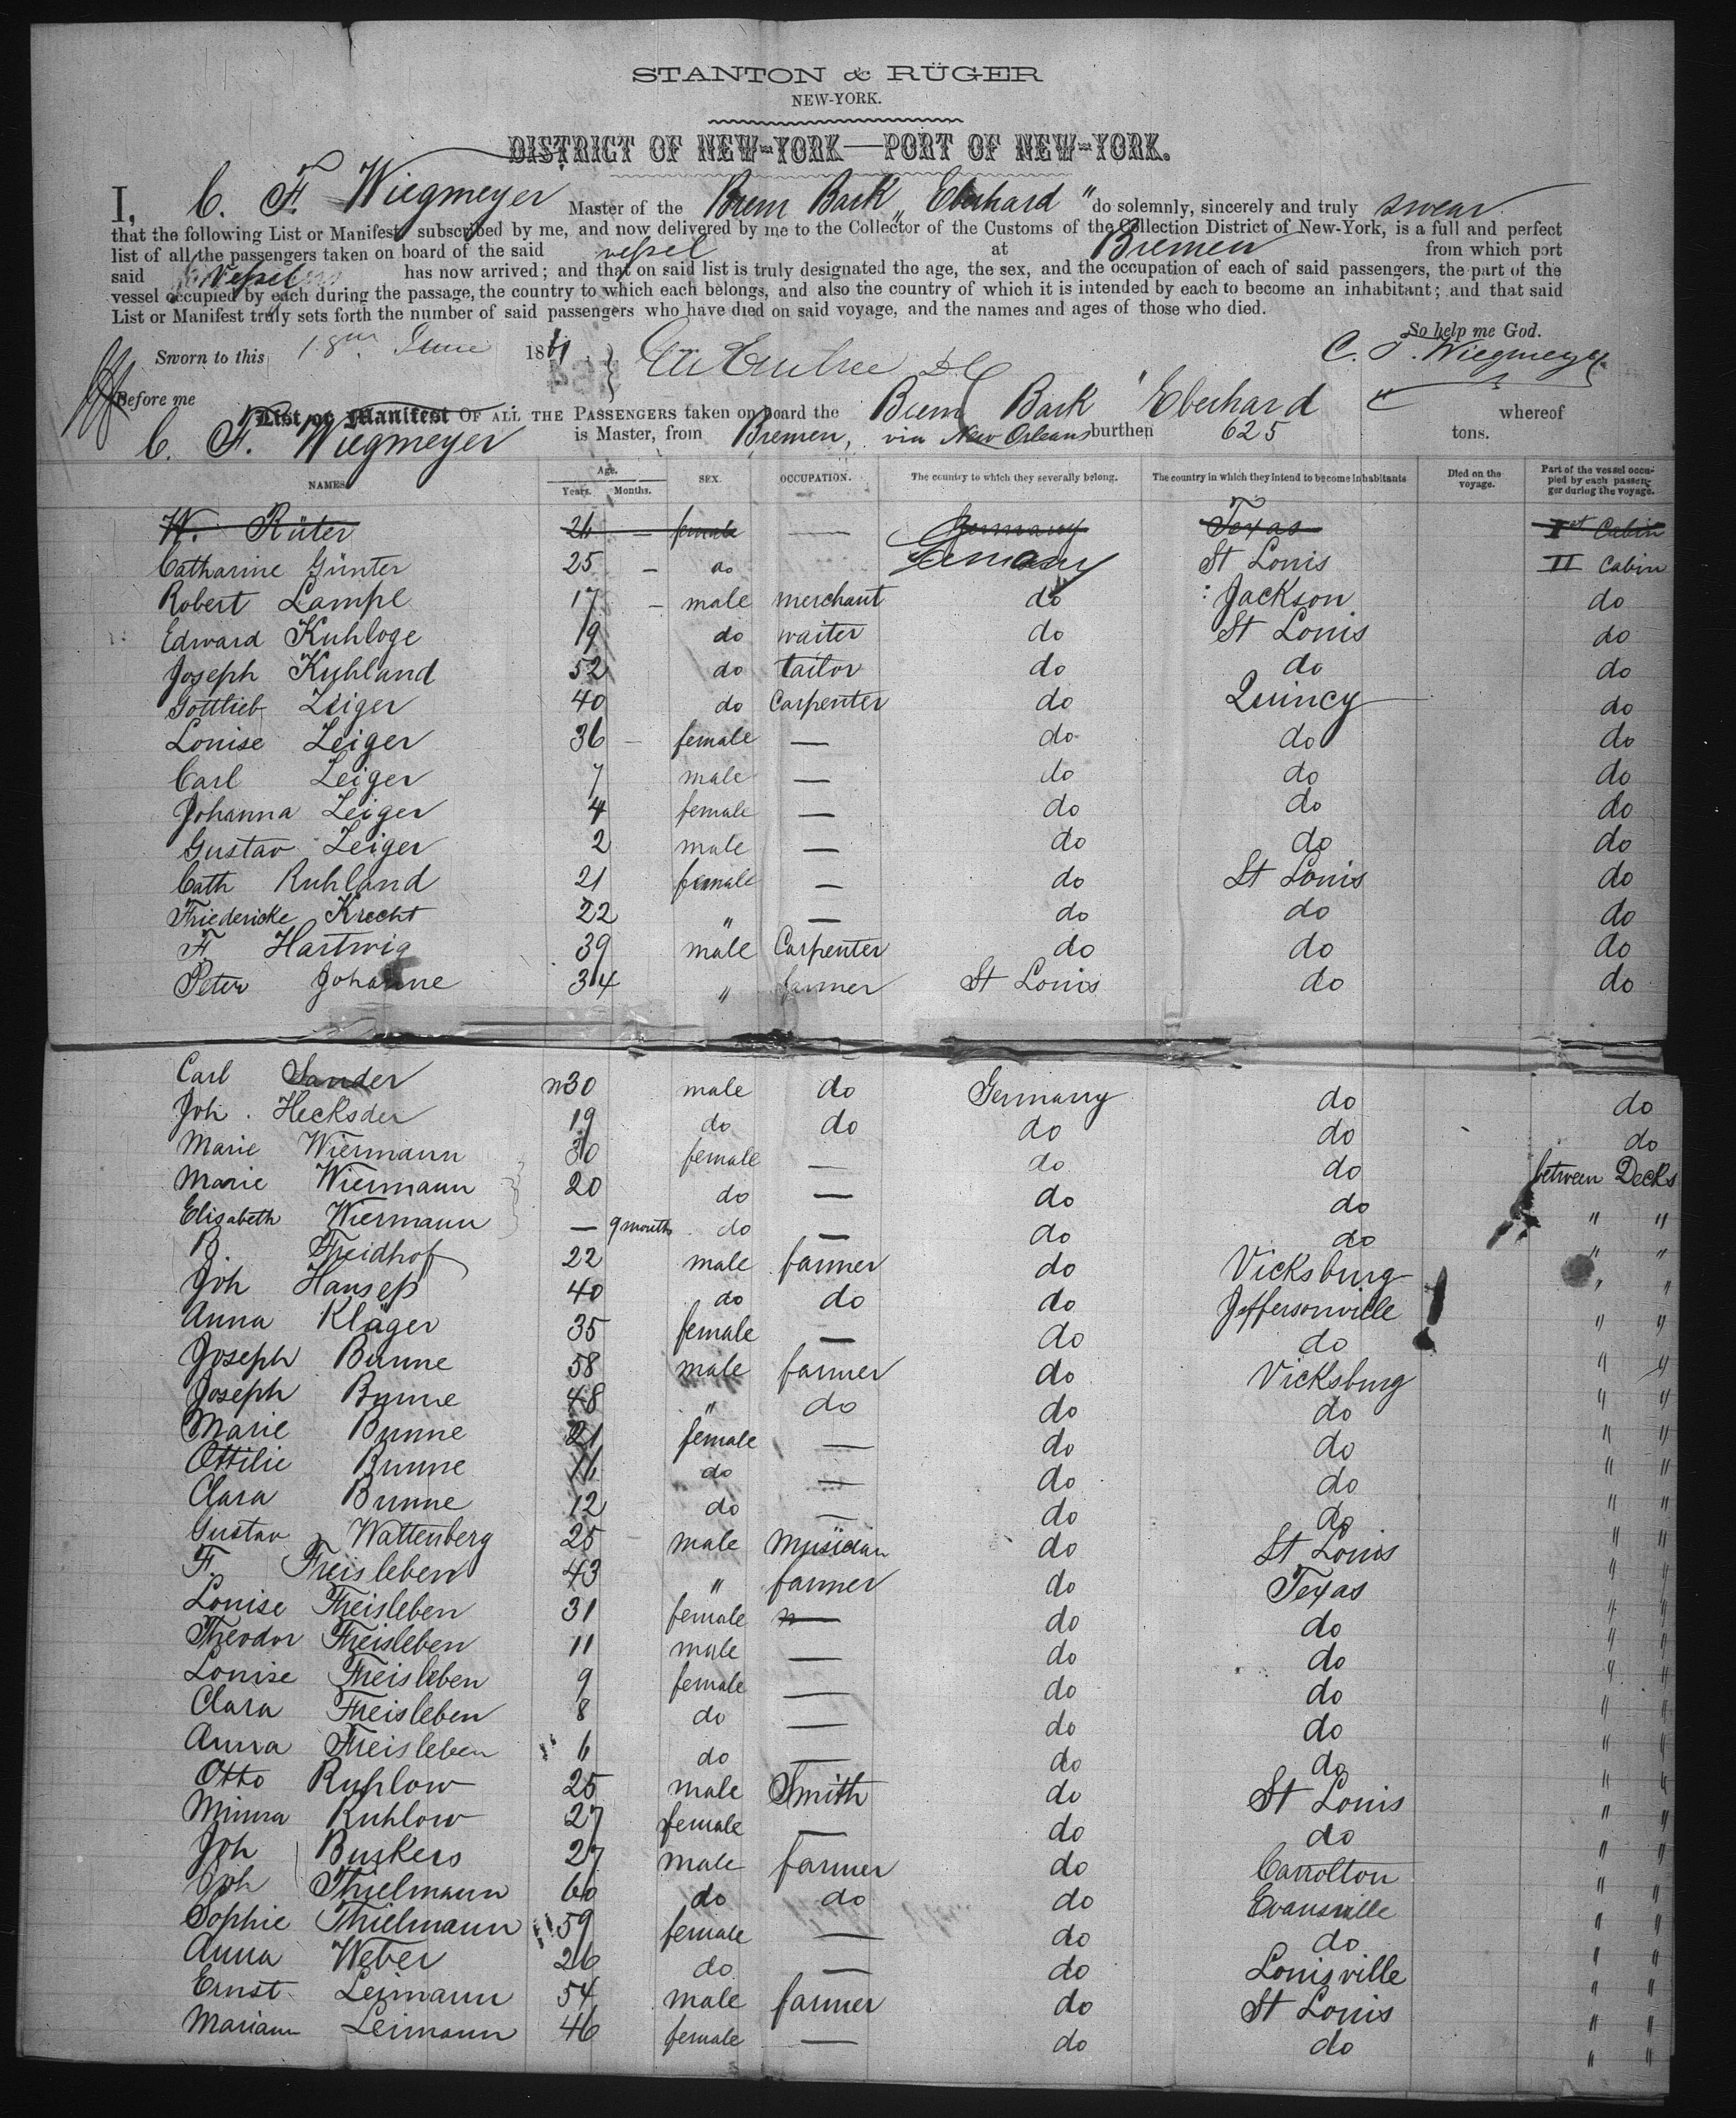 STANTON & RÜGER
NEW-YORK.
DISTRICT OF NEW-YORK—PORT OF NEW-YORK.
I, C. F. Wiegmeyer Master of the Brem Bark „Eberhard" do solemnly, sincerely and truly swear
that the following List or Manifest, subscribed by me, and now delivered by me to the Collector of the Customs of the Collection District of New-York, is a full and perfect
list of all the passengers taken on board of the said vessel at Bremen from which port
said vessel has now arrived; and that on said list is truly designated the age, the sex, and the occupation of each of said passengers, the part of the
vessel occupied by each during the passage, the country to which each belongs, and also the country of which it is intended by each to become an inhabitant; and that said
List or Manifest truly sets forth the number of said passengers who have died on said voyage, and the names and ages of those who died.
So help me God.
Sworn to this 18 June 1861 C. F. Wiegmeyer
Before me
List or Manifest OF ALL THE PASSENGERS taken on board the Brem Bark "Eberhard" whereof
C. F. Wiegmeyer is Master, from Bremen, via New Orleans burthen 625 tons.
NAMES Age. Years. Months. SEX. OCCUPATION. The country to which they severally belong. The country in which they intend to become inhabitants Died on the voyage. Part of the vessel occupied by each passenger during the voyage.
W. Rüter 26 — female — Germany Texas Ist Cabin
Catharine Günter 25 — do Germany St Louis II Cabin
Robert Lampe 17 — male merchant do Jackson do
Edward Kuhloge 19 do waiter do St Louis do
Joseph Kuhland 52 do tailor do do do
Gottlieb Zeiger 40 do Carpenter do Quincy do
Louise Zeiger 36 — female — do do do
Carl Zeiger 7 male — do do do
Johanna Zeiger 4 female — do do do
Gustav Zeiger 2 male — do do do
Cath Ruhland 21 female — do St Louis do
Friedericke Krecht 22 " — do do do
F. Hartwig 39 male Carpenter do do do
Peter Johanne 34 " farmer St Louis do do
Carl Sander 30 male do Germany do do
Joh. Hecksder 19 do do do do do
Marie Wiermann 30 female — do do between Decks
Marie Wiermann 20 do — do do " "
Elisabeth Wiermann — 9 month do — do do " "
B. Freidhof 22 male farmer do Vicksburg " "
Joh Hansen 40 do do do Jeffersonville " "
Anna Kläger 35 female — do do " "
Joseph Bunne 58 male farmer do Vicksburg " "
Joseph Bunne 48 " do do do " "
Marie Bunne 21 female — do do " "
Ottilie Bunne 16 do — do do " "
Clara Bunne 12 do — do do " "
Gustav Wattenberg 25 male Musician do St Louis " "
F. Freisleben 43 " farmer do Texas " "
Louise Freisleben 31 female — do do " "
Theodor Freisleben 11 male — do do " "
Louise Freisleben 9 female — do do " "
Clara Freisleben 8 do — do do " "
Anna Freisleben 6 do — do do " "
Otto Ruhlow 25 male Smith do St Louis " "
Minna Ruhlow 27 female — do do " "
Joh Buskers 27 male farmer do Carrolton " "
Joh Thielmann 60 do do do Evansville " "
Sophie Thielmann 59 female — do do " "
Anna Weber 26 do — do Louisville " "
Ernst Leimann 54 male farmer do St Louis " "
Mariann Leimann 46 female — do do " "